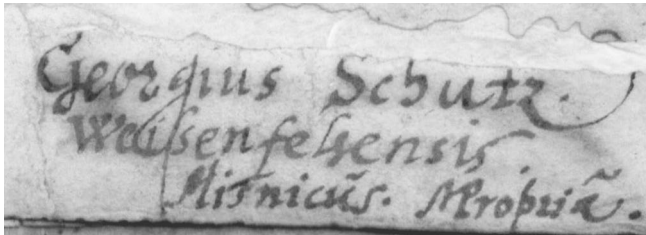 Georgius Schutz.
Weissenfelsensis
Misnicus. Mpropriã.